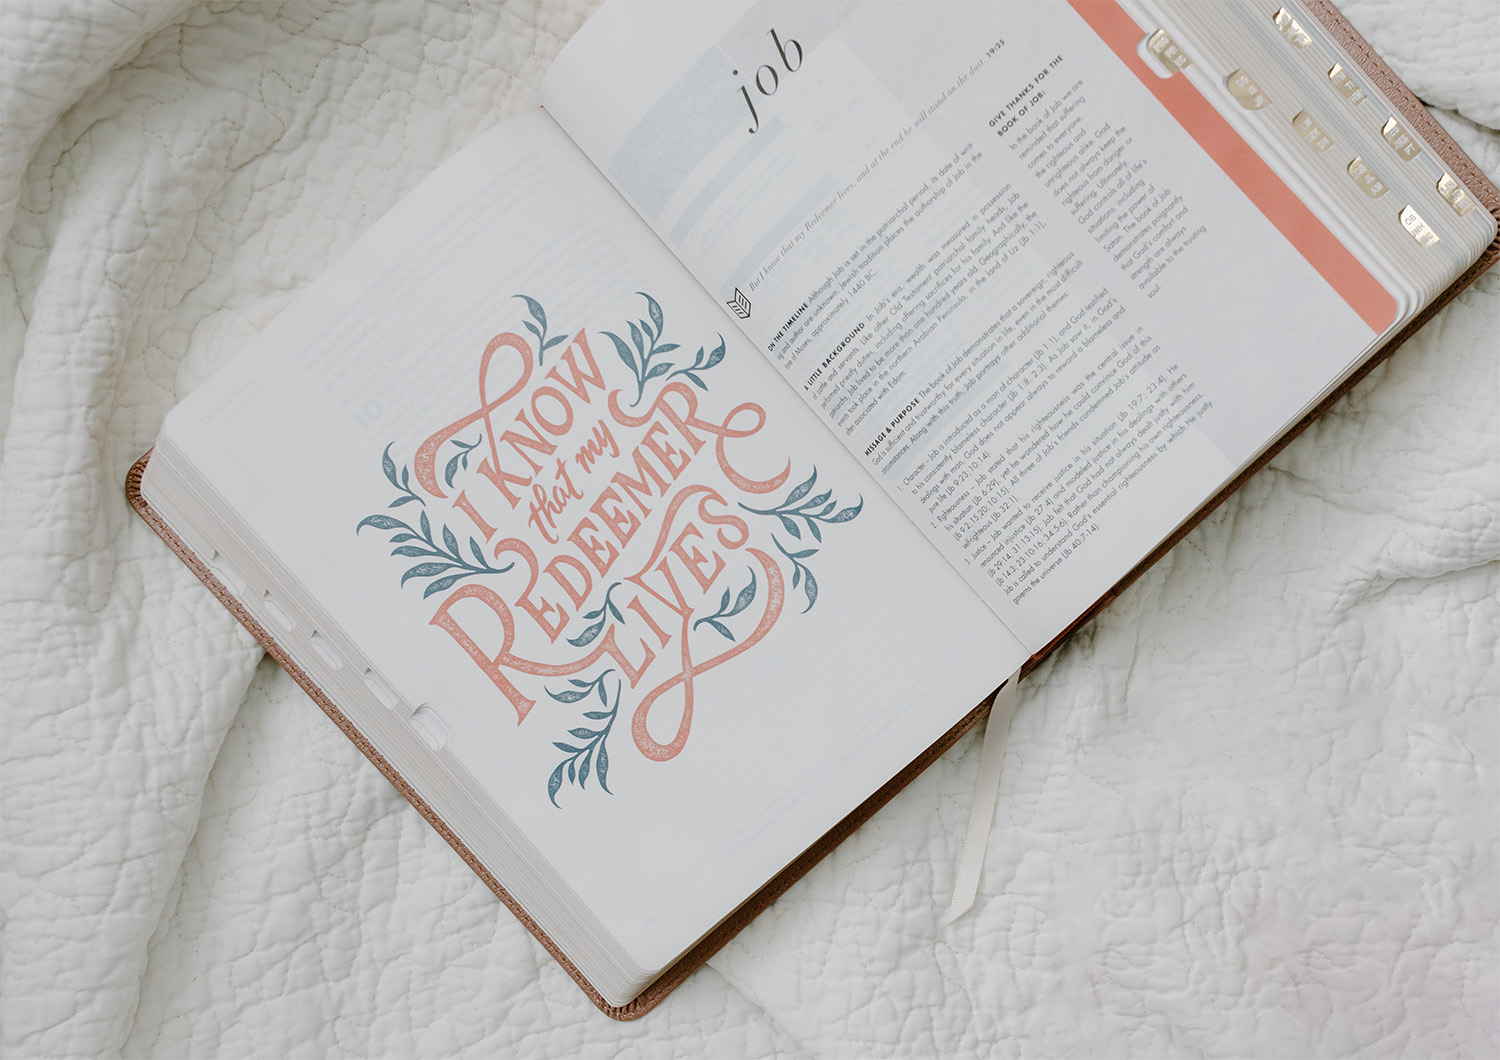 I KNOW
that my
REDEEMER
LIVES
job
But I know that my Redeemer lives, and at the end he will stand on the dust. 19:25
ON THE TIMELINE Although Job is set in the patriarchal period, its date of writ-
ing and author are unknown. Jewish tradition places the authorship of Job in the
time of Moses, approximately 1440 BC.
A LITTLE BACKGROUND In Job's era, wealth was measured in possession
of cattle and servants. Like other Old Testament patriarchal family heads, Job
performed priestly duties, including offering sacrifices for his family. And like the
patriarchs, Job lived to be more than one hundred years old. Geographically, the
events took place in the northern Arabian Peninsula, in the land of Uz (Jb 1:1),
often associated with Edom.
MESSAGE & PURPOSE The book of Job demonstrates that a sovereign, righteous
God is sufficient and trustworthy for every situation in life, even in the most difficult
circumstances. Along with this truth, Job portrays other additional themes:
1. Character – Job is introduced as a man of character (Jb 1:1), and God testified
to his consistently blameless character (Jb 1:8; 2:3). As Job saw it, in God's
dealings with man, God does not appear always to reward a blameless and
pure life (Jb 9:23; 10:14).
2. Righteousness – Job stated that his righteousness was the central issue in
his situation (Jb 6:29), yet he wondered how he could convince God of this
(Jb 9:2,15,20; 10:15). All three of Job's friends condemned Job's attitude as
self-righteous (Jb 32:1).
3. Justice – Job wanted to receive justice in his situation (Jb 19:7; 23:4). He
renounced injustice (Jb 27:4) and modeled justice in his dealings with others
(Jb 29:14; 31:13-15). Job felt that God had not always dealt justly with him
(Jb 14:3; 23:10-16; 34:5-6). Rather than championing his own righteousness,
Job is called to understand God's essential righteousness by which He justly
governs the universe (Jb 40:7-14).
GIVE THANKS FOR THE
BOOK OF JOB:
In the book of Job we are
reminded that suffering
comes to everyone,
the righteous and
unrighteous alike. God
does not always keep the
righteous from danger or
suffering. Ultimately,
God controls all of life's
situations, including
limiting the power of
Satan. The book of Job
demonstrates poignantly
that God's comfort and
strength are always
available to the trusting
soul.